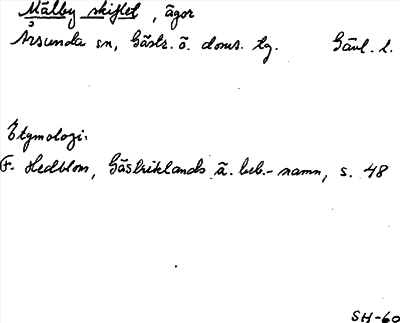 Mälby skiftet, ägor
Årsunda sn, Gästr. ö. doms. tg. Gävl. l.
Etymologi:
F. Hedblom, Gästriklands ä. beb.-namn, s. 48
SH-60